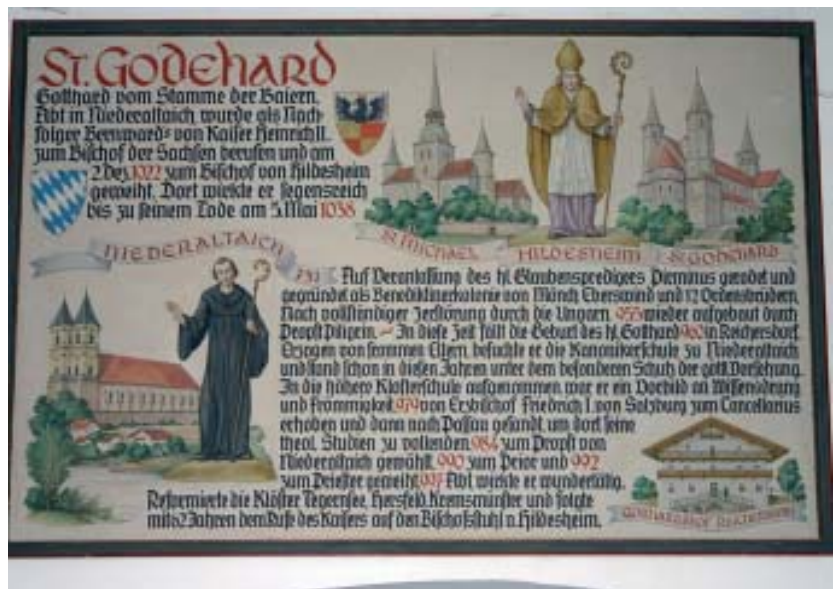 St. Godehard
Gotthard vom Stamme der Baiern,
Abt in Niederaltaich, wurde als Nach-
folger Bernwards von Kaiser Heinrich II.
zum Bischof der Sachsen berufen und am
2. Dez. 1022 zum Bischof von Hildesheim
geweiht. Dort wirkte er segensreich
bis zu seinem Tode am 5. Mai 1038
St. Michael Hildesheim St. Godehard
Niederaltaich
731 Auf Veranlassung des hl. Glaubenspredigers Pirminus gerodet und
gegründet als Benediktinerkolonie von Mönch Eberswind und 12 Ordensbrüdern.
Nach vollständiger Zerstörung durch die Ungarn, 955 wieder aufgebaut durch
Propst Piligrin. – In diese Zeit fällt die Geburt des hl. Gotthard 960 in Reichersdorf.
Erzogen von frommen Eltern, besuchte er die Kanonikerschule zu Niederaltaich
und stand schon in diesen Jahren unter dem besonderen Schutz der göttl. Vorsehung.
In die höhere Klosterschule aufgenommen war er ein Vorbild an Wissensdrang
und Frommigkeit. 979 von Erzbischof Friedrich I. von Salzburg zum Cancellarius
erhoben und dann nach Passau gesandt, um dort seine
theol. Studien zu vollenden. 984 zum Propst von
Niederaltaich gewählt, 990 zum Prior und 992
zum Priester geweiht. 997 Abt wirkte er wundertätig.
Reformierte die Klöster Tegernsee, Hersfeld, Kremsmünster und folgte
mit 62 Jahren dem Rufe des Kaisers auf den Bischofsstuhl n. Hildesheim.